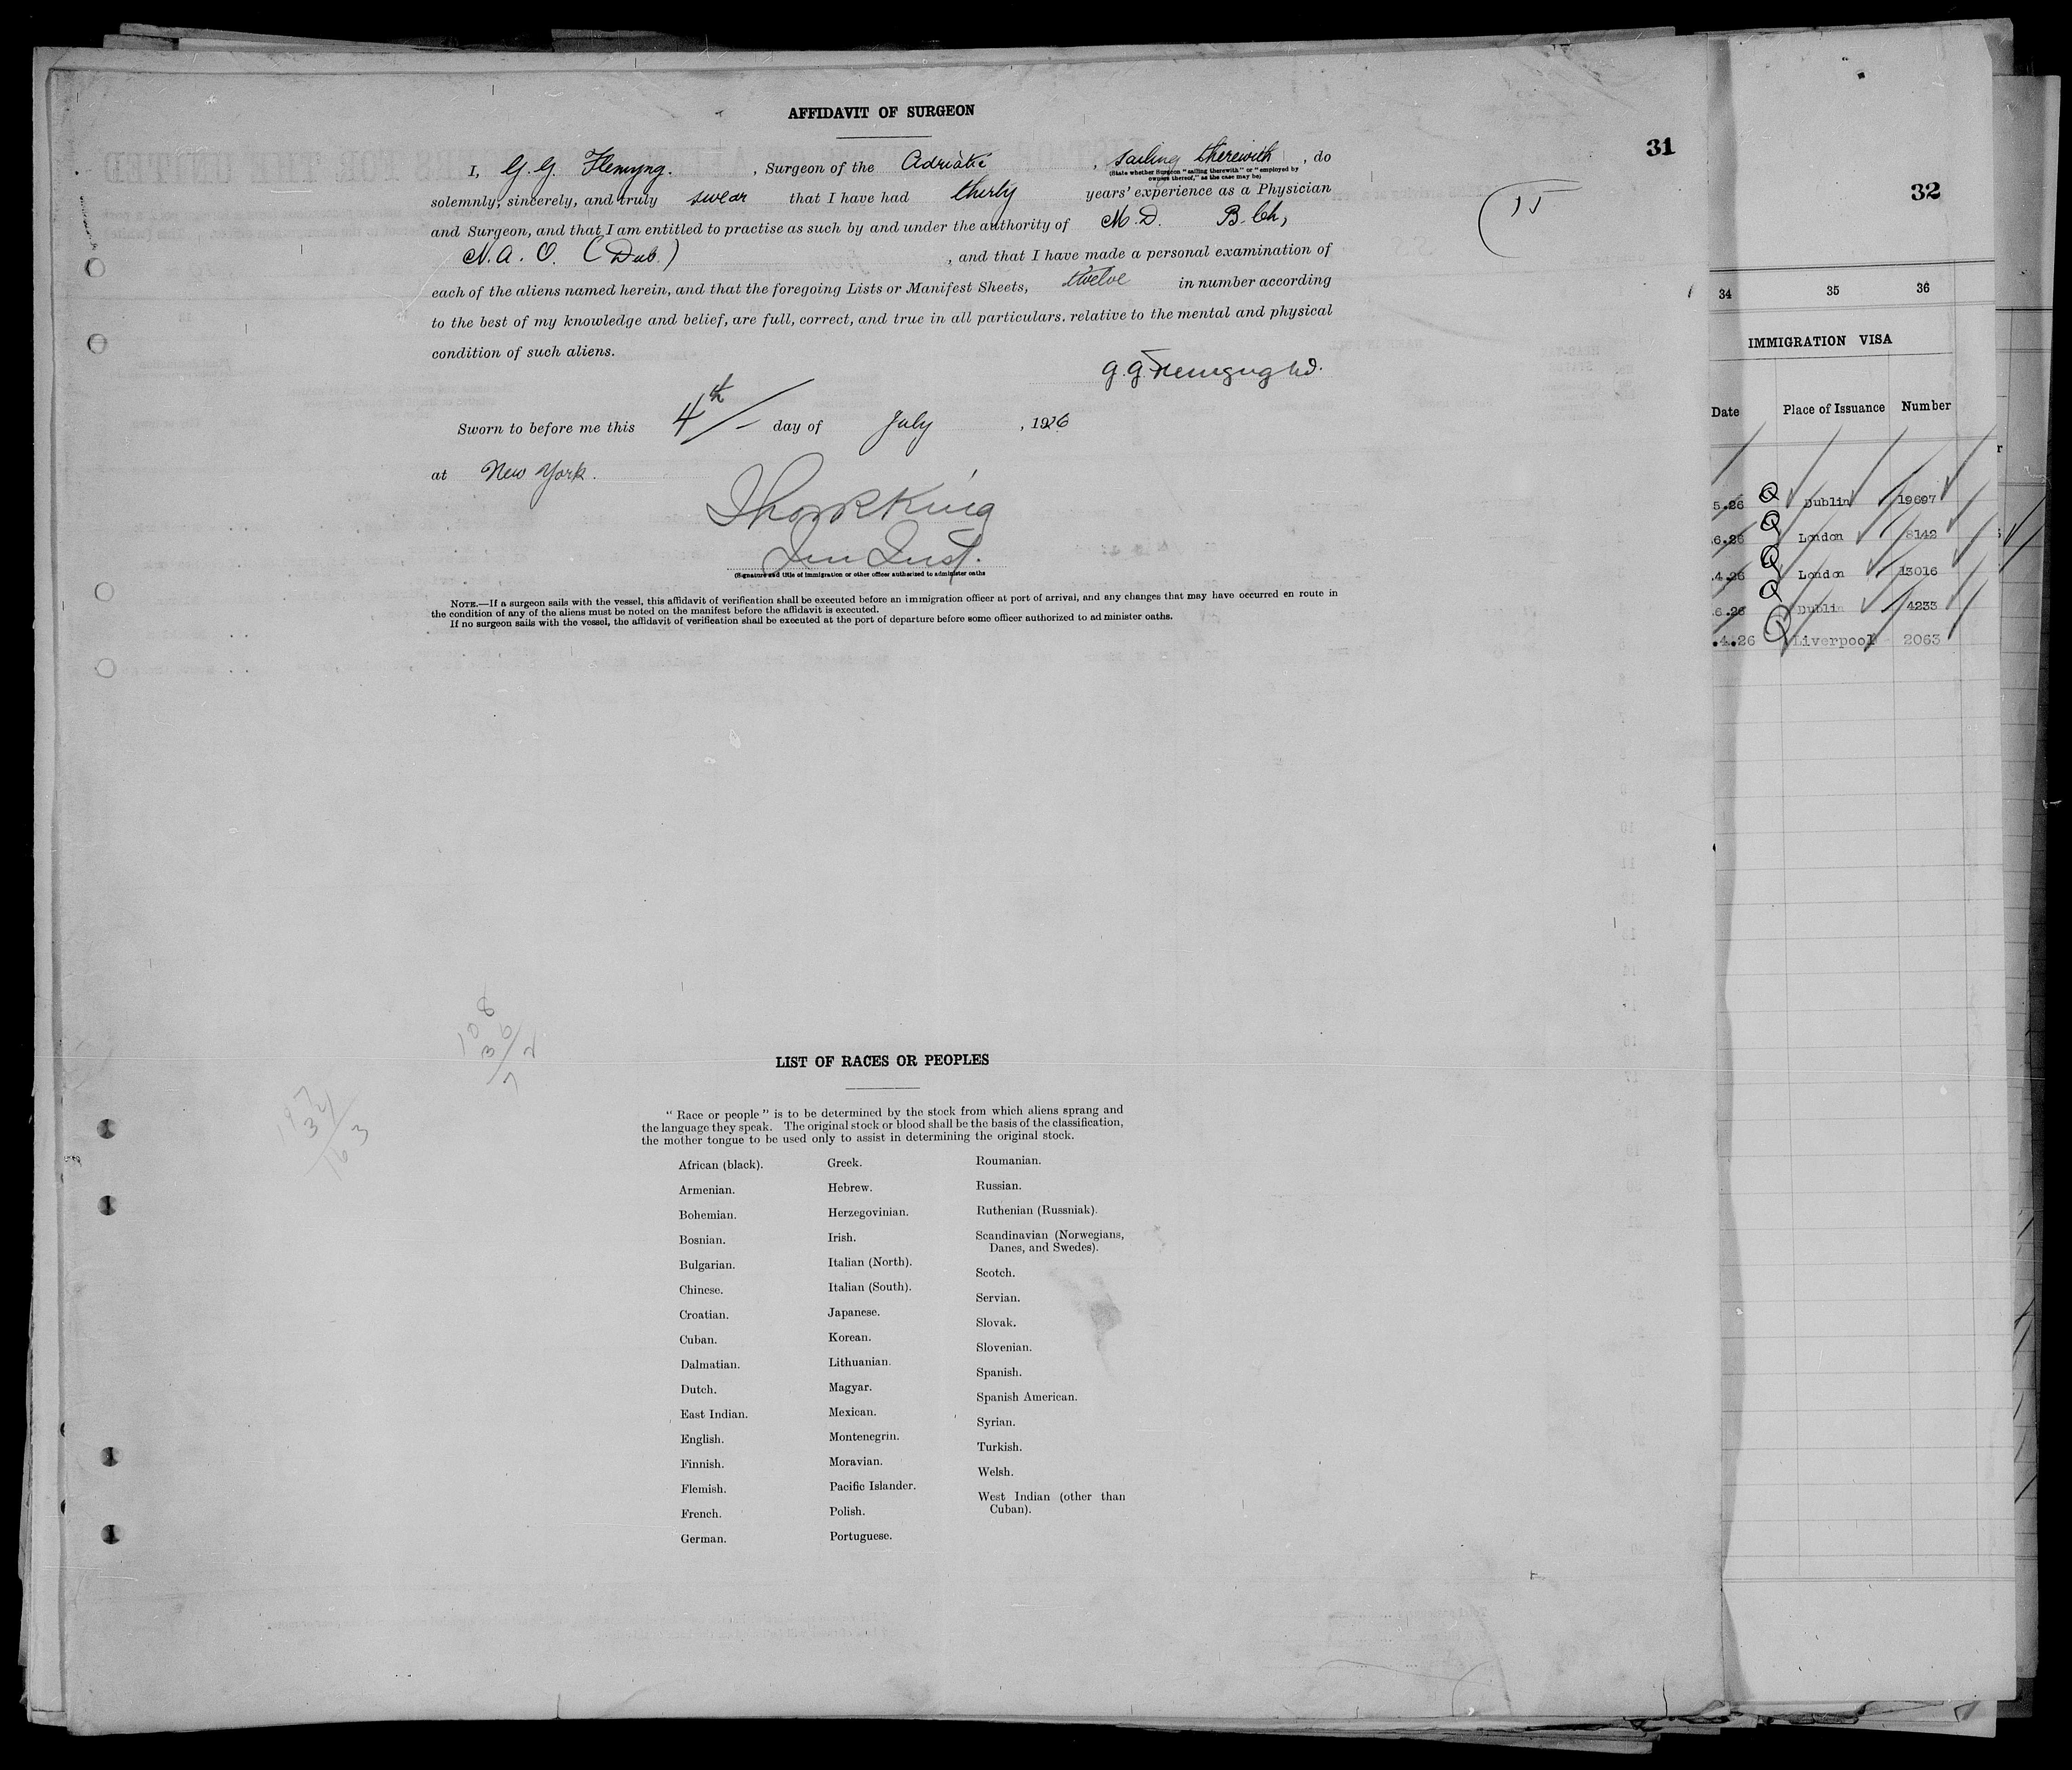 AFFIDAVIT OF SURGEON
31
I, G. G. Flemyng. , Surgeon of the Adriatic , sailing therewith , do
(State whether Surgeon "sailing therewith" or "employed by
owners thereof," as the case may be)
solemnly, sincerely, and truly swear that I have had thirty years' experience as a Physician
and Surgeon, and that I am entitled to practise as such by and under the authority of M.D. B.Ch,
N.A.O. (Dub.) , and that I have made a personal examination of
each of the aliens named herein, and that the foregoing Lists or Manifest Sheets, twelve in number according
to the best of my knowledge and belief, are full, correct, and true in all particulars. relative to the mental and physical
condition of such aliens.
G. G. Flemyng M.D.
Sworn to before me this 4th day of July , 1926
at New York.
Imm Insp.
(Signature and title of immigration or other officer authorized to administer oaths
NOTE.—If a surgeon sails with the vessel, this affidavit of verification shall be executed before an immigration officer at port of arrival, and any changes that may have occurred en route in
the condition of any of the aliens must be noted on the manifest before the affidavit is executed.
If no surgeon sails with the vessel, the affidavit of verification shall be executed at the port of departure before some officer authorized to administer oaths.
108
36
72
197
34
163
LIST OF RACES OR PEOPLES
" Race or people " is to be determined by the stock from which aliens sprang and
the language they speak. The original stock or blood shall be the basis of the classification,
the mother tongue to be used only to assist in determining the original stock.
African (black).
Armenian.
Bohemian.
Bosnian.
Bulgarian.
Chinese.
Croatian.
Cuban.
Dalmatian.
Dutch.
East Indian.
English.
Finnish.
Flemish.
French.
German.
Greek.
Hebrew.
Herzegovinian.
Irish.
Italian (North).
Italian (South).
Japanese.
Korean.
Lithuanian.
Magyar.
Mexican.
Montenegrin.
Moravian.
Pacific Islander.
Polish.
Portuguese.
Roumanian.
Russian.
Ruthenian (Russniak).
Scandinavian (Norwegians,
Danes, and Swedes).
Scotch.
Servian.
Slovak.
Slovenian.
Spanish.
Spanish American.
Syrian.
Turkish.
Welsh.
West Indian (other than
Cuban).
32
34 35 36
IMMIGRATION VISA
Date Place of Issuance Number
5.26 Q Dublin 19697
.6.26 Q London 8142
.4.26 Q London 13016
.6.26 Q Dublin 4233
.4.26 Q Liverpool 2063